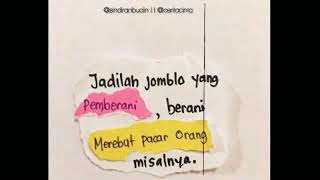 @sindiranbucin || @ceritacinta
Jadilah jomblo yang
Pemberani, berani
Merebut pacar orang
misalnya.